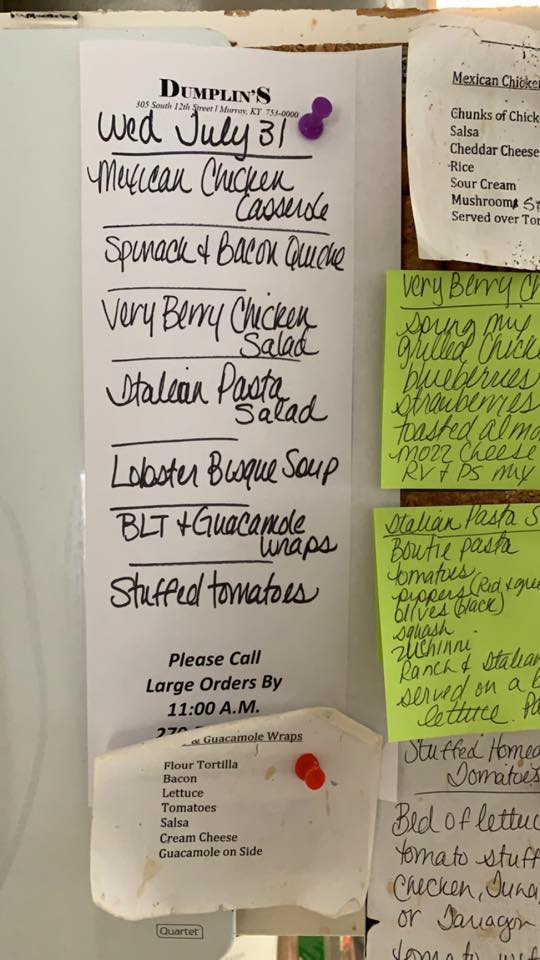 DUMPLIN'S
305 South 12th Street | Murray, KY 753-0000
Wed July 31
Mexican Chicken
Casserole
Spinach & Bacon Quiche
Very Berry Chicken
Salad
Italian Pasta
Salad
Lobster Bisque Soup
BLT & Guacamole
Wraps
Stuffed tomatoes
Please Call
Large Orders By
11:00 A.M.
270
& Guacamole Wraps
Flour Tortilla
Bacon
Lettuce
Tomatoes
Salsa
Cream Cheese
Guacamole on Side
Quartet
Mexican Chicken
Chunks of Chick
Salsa
Cheddar Cheese
Rice
Sour Cream
Mushroom
Served over Tor
Very Berry Ch
spring mix
grilled chick
blueberries
strawberries
toasted almo
mozz cheese
RV & PS mix
Italian Pasta S
Boutie pasta
tomatoes
peppers (Red & gre
olives (black)
squash
zuchinni
Ranch & Italian
served on a b
lettuce. Pa
Stuffed Homeg
Tomatoes
Bed of lettuc
tomato stuff
chicken, Tuna,
or Tarragon